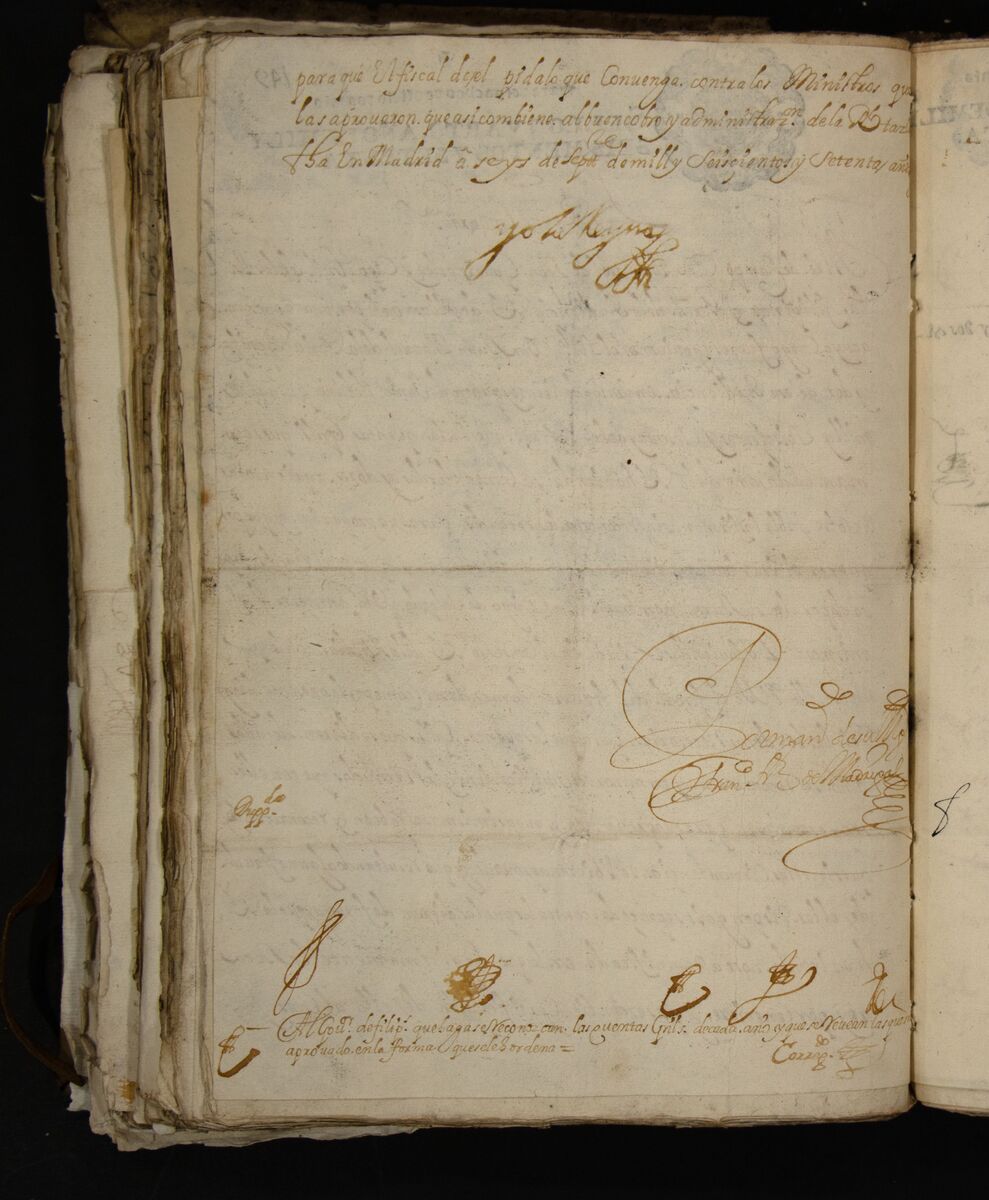 para que El fiscal de el pida lo que Convenga contra los Ministros que
las aprovaron. que asi combiene al buen cobro y administraᵒⁿ de la Rˡ haz
fha En Madrid a seys de Septᵉ de mill y Seiscientos y Setenta, años
yo la Reyna
Por mandᵒ de su Mgᵈ
Franᶜᵒ Frz de Madrigal
Dupᵖᵈᵒ
Al Govʳ de filipˢ que haga se Reconozcan las quentas Gnˡˢ de cada año y que se Vean las que
aprovado en la forma que se le hordena =
Corrégᵈᵒ
8